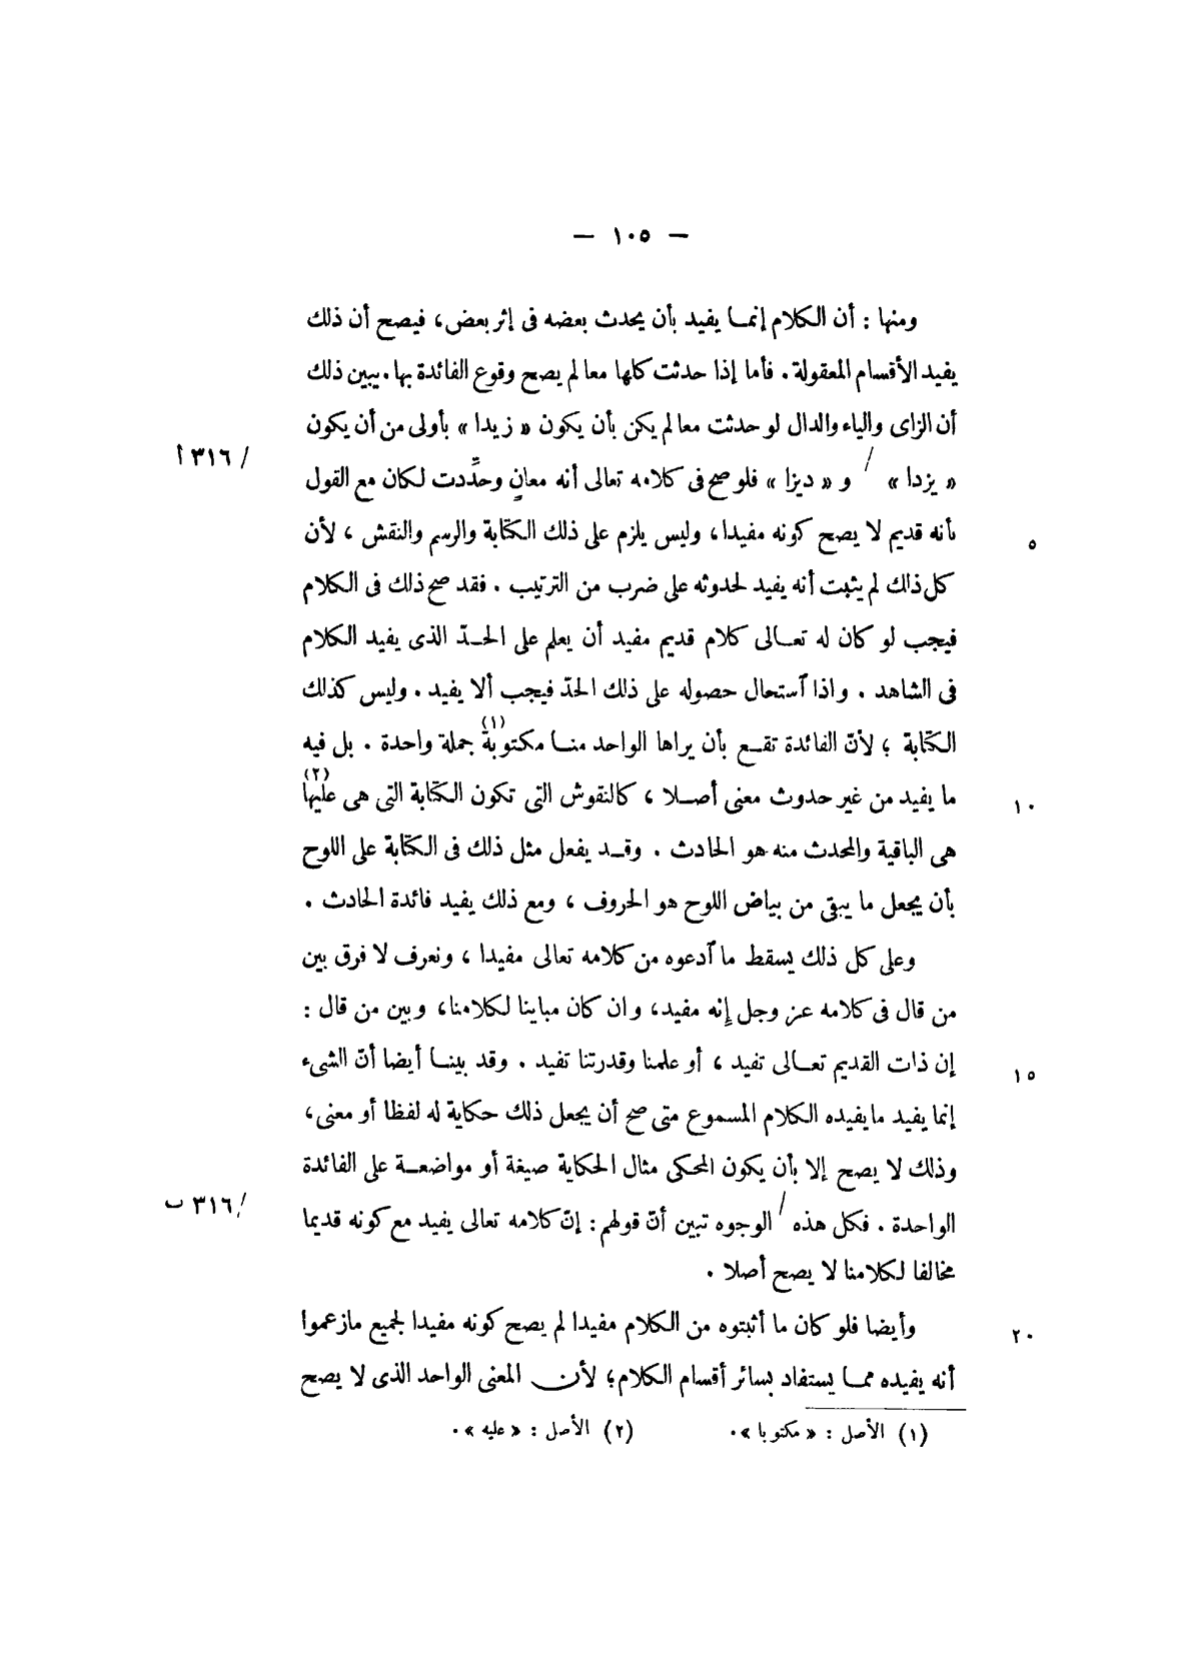 — ١٠٥ —
ومنها : أن الكلام إنمـا يفيد بأن يحدث بعضه فى إثر بعض، فيصح أن ذلك
يفيد الأقسام المعقولة . فأما إذا حدثت كلها معا لم يصح وقوع الفائدة بها . يبين ذلك
أن الزاى والياء والدال لو حدثت معا لم يكن بأن يكون « زيدا » بأولى من أن يكون
/ ٣١٦ أ
« يزدا » / و « ديزا » فلو صح فى كلامه تعالى أنه معانٍ وحدَّدت لكان مع القول
بأنه قديم لا يصح كونه مفيدا، وليس يلزم على ذلك الكتابة والرسم والنقش ، لأن
٥
كل ذلك لم يثبت أنه يفيد لحدوثه على ضرب من الترتيب . فقد صح ذلك فى الكلام
فيجب لو كان له تعـالى كلام قديم مفيد أن يعلم على الحـدّ الذى يفيد الكلام
فى الشاهد . واذا ٱستحال حصوله على ذلك الحدّ فيجب ألا يفيد . وليس كذلك
الكتابة ؛ لأنّ الفائدة تقـع بأن يراها الواحد منـا مكتوبة (١) جملة واحدة . بل فيه
ما يفيد من غير حدوث معنى أصـلا ، كالنقوش التى تكون الكتابة التى هى عليها (٢)
١٠
هى الباقية والمحدث منه هو الحادث . وقـد يفعل مثل ذلك فى الكتابة على اللوح
بأن يجعل ما يبقى من بياض اللوح هو الحروف ، ومع ذلك يفيد فائدة الحادث .
وعلى كل ذلك يسقط ما ٱدعوه من كلامه تعالى مفيدا ، ونعرف لا فرق بين
من قال فى كلامه عز وجل إنه مفيد، وان كان مباينا لكلامنا، وبين من قال :
إن ذات القديم تعـالى تفيد ، أو علمنا وقدرتنا تفيد . وقد بينـا أيضا أنّ الشىء
١٥
إنما يفيد ما يفيده الكلام المسموع متى صح أن يجعل ذلك حكاية له لفظا أو معنى،
وذلك لا يصح إلا بأن يكون المحكى مثال الحكاية صيغة أو مواضعـة على الفائدة
/ ٣١٦ ب
الواحدة . فكل هذه / الوجوه تبين أنّ قولهم : إنّ كلامه تعالى يفيد مع كونه قديما
مخالفا لكلامنا لا يصح أصلا .
وأيضا فلو كان ما أثبتوه من الكلام مفيدا لم يصح كونه مفيدا لجميع مازعموا
٢٠
أنه يفيده ممـا يستفاد بسائر أقسام الكلام؛ لأن المعنى الواحد الذى لا يصح
(١) الأصل : « مكتوبا » .
(٢) الأصل : « عليه » .